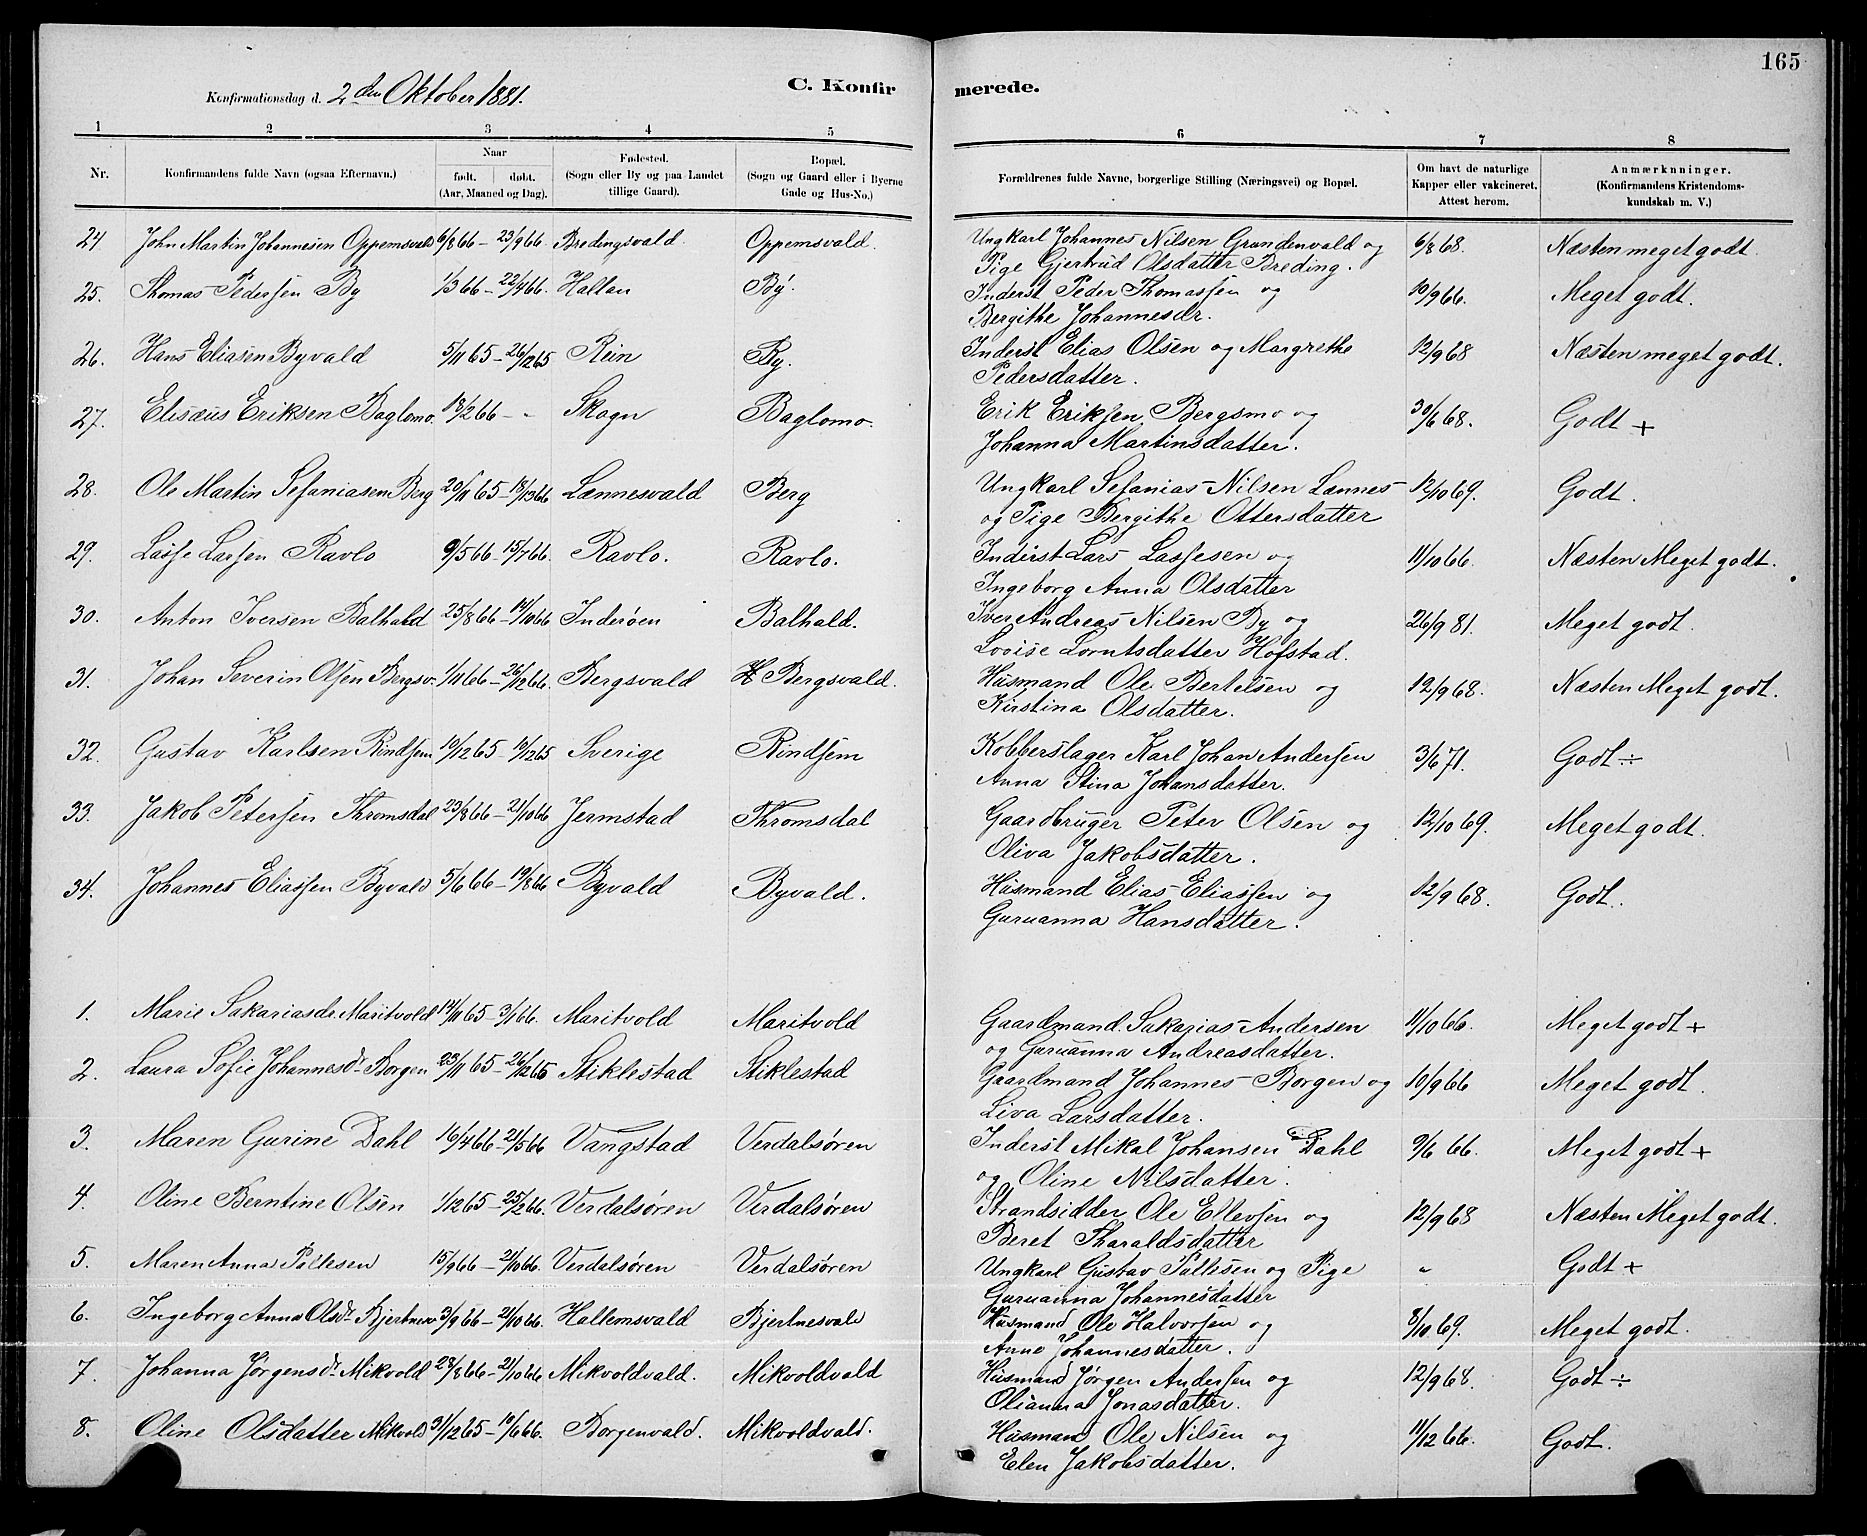 165
Konfirmationsdag d. 2den Oktober 1881.
C. Konfirmerede.
1 2 3 4 5 6 7 8
Nr. Konfirmandens fulde Navn (ogsaa Efternavn.) Naar født. døbt. (Aar, Maaned og Dag). Fødested. (Sogn eller By og paa Landet tillige Gaard). Bopæl. (Sogn og Gaard eller i Byerne Gade og Hus-No.) Forældrenes fulde Navne, borgerlige Stilling (Næringsvei) og Bopæl. Om havt de naturlige Kapper eller vakcineret. Attest herom. Anmærkninger. (Konfirmandens Kristendoms-kundskab m. V.)
24 John Martin Johannesen Oppemsvald 6/8 66 – 23/9 66. Bredingsvald. Oppemsvald. Ungkarl Johannes Nilsen Grundenvald og 6/8 68. Næsten meget godt.
Pige Gjertrud Olsdatter Breding.
25. Thomas Pedersen By 1/3 66 – 22/4 66. Hallan By. Inderst Peder Thomassen og 10/9 66. Meget godt.
Bergithe Johannesdr.
26. Hans Eliasen Byvald 5/11 65 – 26/12 65 Rein By. Inderst Elias Olsen og Margrethe 12/9 68 Næsten meget godt.
Pedersdatter.
27. Elisæus Eriksen Baglomo. 2 66 – " Skogn Baglomo. Erik Eriksen Bergsmo og 30/6 68. Godt +
Johanna Martinsdatter.
28. Ole Martin Sefaniasen Berg 20/11 65 – 66 Lænnesvald Berg Ungkarl Sefanias Nilsen Lænnes 12/10 69. Godt.
og Pige Bergithe Ottersdatter
29. Lasse Larsen Ravlo 9/5 66 – 15/7 66. Ravlo. Ravlo. Inderst Lars Lassesen og 11/10 66. Næsten Meget godt.
Ingeborg Anna Olsdatter
30. Anton Iversen Balhald 25/8 66 – 14/10 66 Inderøen Balhald. Iver Andreas Nilsen By og 26/9 81. Meget godt.
Lovise Lorntsdatter Hofstad.
31. Johan Severin Olsen Bergsv. 1/11 66 – 26/12 66. Bergsvald Bergsvald. Husmand Ole Bertelsen og 12/9 68. Næsten Meget godt.
Kirstina Olsdatter.
32. Gustav Karlsen Rindsem 12 65 – 12 65 Sverige Rindsem Kobberslager Karl Johan Andersen 3/6 71. Godt ÷
Anna Stina Johansdatter.
33. Jakob Petersen Thromsdal 23/8 66 – 21/10 66 Jermstad Thromsdal Gaardbruger Peter Olsen og 12/10 69. Meget godt.
Oliva Jakobsdatter.
34. Johannes Eliassen Byvald 5/6 66 – 19/8 66 Byvald Byvald. Husmand Elias Eliassen og 12/9 68. Godt.
Guruanna Hansdatter.
1. Marie Sakariasdr. Maritvold 11 65 – 3/1 66. Maritvold Maritvold Gaardmand Sakarias Andersen 11/10 66. Meget godt +
og Guruanna Andreasdatter.
2. Laura Sofie Johannesdr. Borgen 23/11 65 – 26/12 65 Stiklestad Stiklestad Gaardmand Johannes Borgen og 10/9 66 Meget godt.
Liva Larsdatter.
3. Maren Gurine Dahl 16/4 66 – 21/5 66 Vangstad Verdalsøren Inderst Mikal Johansen Dahl 9/6 66. Meget godt +
og Oline Nilsdatter.
4. Oline Berntine Olsen 1/12 65 – 25/2 66. Verdalsøren Verdalsøren Strandsidder Ole Ellevsen og 12/9 68 Næsten Meget godt.
Beret Tharaldsdatter
5. Maren Anna Pallesen 15/9 66 – 21/10 66. Verdalsøren Verdalsøren Ungkarl Gustav Pallesen og Pige " Godt +
Guruanna Johannesdatter
6. Ingeborg Anna Olsdr. 3/9 66 – 21/10 66. Hallemsvald Bjertnesvald Husmand Ole Halvorsen og 8/10 69. Meget godt.
Anne Johannesdatter.
7. Johanna Jørgensdr. Mikvold 28/8 66 – 21/10 66 Mikvoldvald. Mikvoldvald Husmand Jørgen Andersen og 12/9 68. Godt ÷
Olianna Jonasdatter.
8. Oline Olsdatter Mikvold 31/12 65 – 6 66. Borgenvald. Mikvoldvald. Husmand Ole Nilsen og 11/12 66. Godt.
Elen Jakobsdatter.